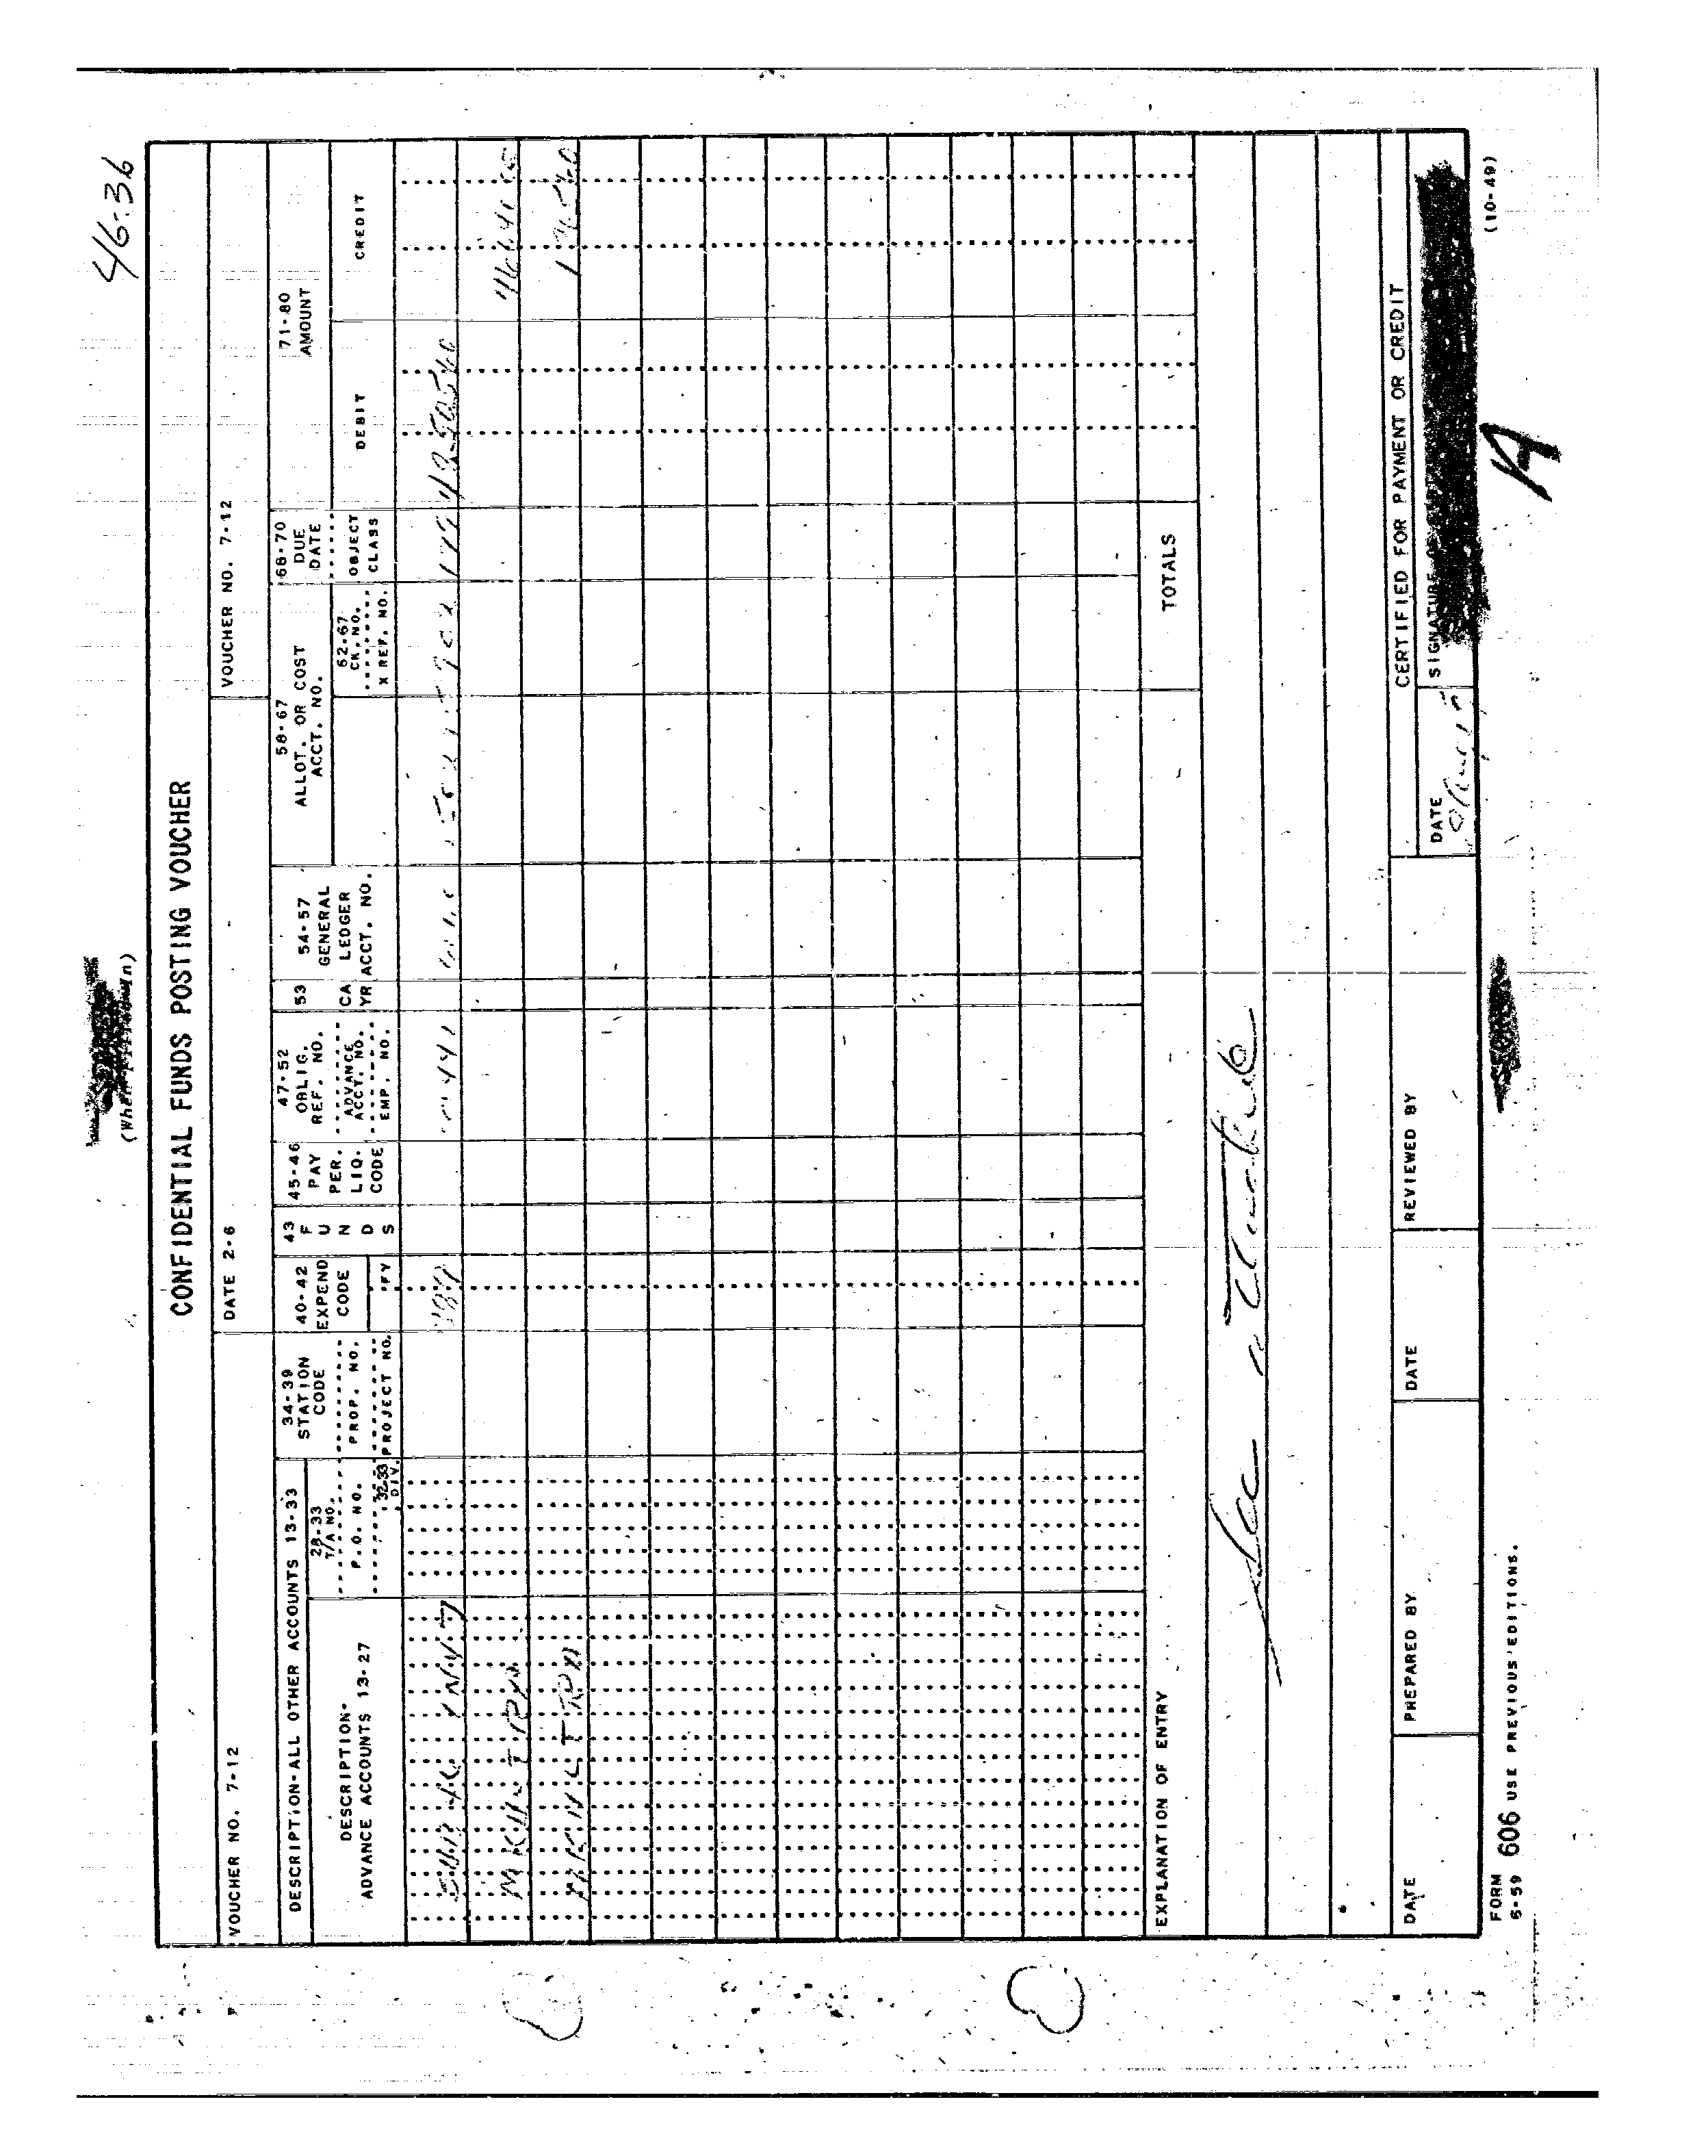 46-36
(When Filled In)
CONFIDENTIAL FUNDS POSTING VOUCHER
VOUCHER NO. 7-12
DATE 2-6
VOUCHER NO. 7-12
DESCRIPTION-ALL OTHER ACCOUNTS 13-33
DESCRIPTION-
ADVANCE ACCOUNTS 13-27
28-33
T/A NO.
P.O. NO.
32-33
DIV.
34-39
STATION
CODE
PROP. NO.
PROJECT NO.
40-42
EXPEND
CODE
FY
43
F
U
N
D
S
45-46
PAY
PER.
LIQ.
CODE
47-52
OBLIG.
REF. NO.
ADVANCE
ACCT. NO.
EMP. NO.
53
CA
YR
54-57
GENERAL
LEDGER
ACCT. NO.
58-67
ALLOT. OR COST
ACCT. NO.
62-67
CK. NO.
X REF. NO.
68-70
DUE
DATE
OBJECT
CLASS
71-80
AMOUNT
DEBIT
CREDIT
TOTALS
EXPLANATION OF ENTRY
See attached
CERTIFIED FOR PAYMENT OR CREDIT
DATE
PREPARED BY
DATE
REVIEWED BY
DATE
SIGNATURE OF
FORM
5-59 606 USE PREVIOUS EDITIONS.
SECRET
(10-49)
A